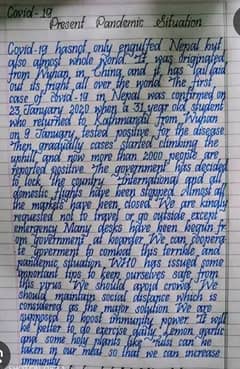 Covid-19
Present Pandemic Situation
Covid-19 hasnot only engulfed Nepal but
also almost whole world. It was originated
from Wuhan in China, and it has laid
out its fright all over the world. The first
case of Covid-19 in Nepal was confirmed on
23 January 2020 when a 31 year old student
who returned to Kathmandu from Wuhan
on 9 January, tested positive for the disease
Then gradually cases started climbing the
uphill and now more than 2000 people are
reported positive. The government has decided
to lock the country. International and all
domestic flights have been stopped. Almost all
the markets have been closed. We are kindly
requested not to travel or go outside except
emergency. Many desks have been begun fr
om government at boarder. We can coopera
te goverment to combat this terrible and
pandemic situation. WHO has issued some
important tips to keep ourselves safe from
this virus. We should avoid crowd. We
should maintain social distance which is
considered as the major solution. We are
supposed to boost immunity power. It will
be better to do exercise daily. Lemon, garlic
and some holy plants like Tulsi can be
taken in our meal so that we can increase
immunity.